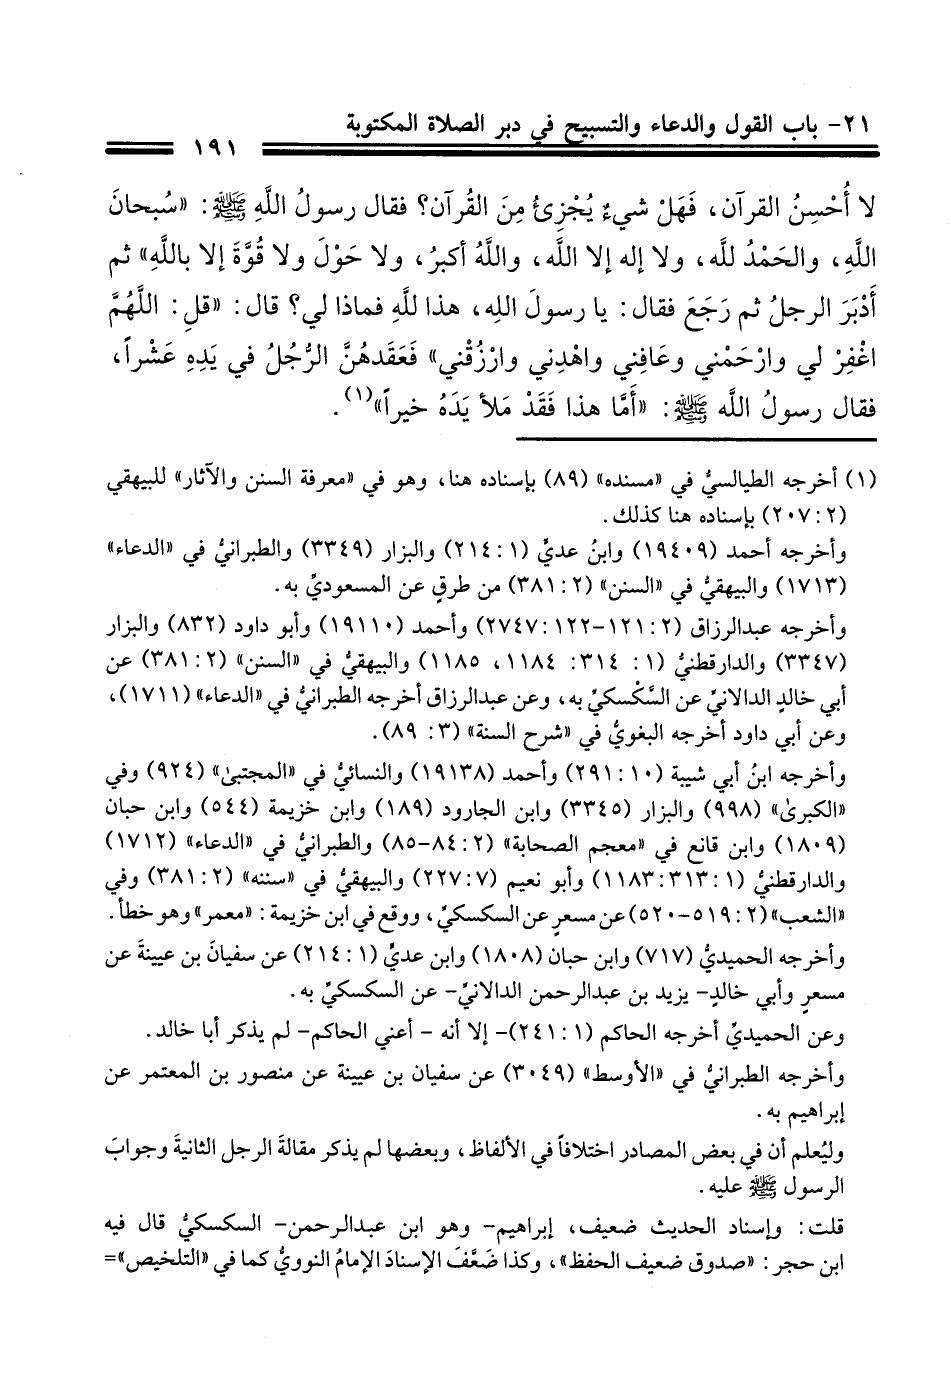 ٢١- باب القول والدعاء والتسبيح في دبر الصلاة المكتوبة
١٩١
لا أُحْسِنُ القرآن، فَهَلْ شيءٌ يُجْزِئُ مِنَ القُرآن؟ فقال رسولُ اللَّهِ ﷺ: «سُبحانَ
اللَّهِ، والحَمْدُ للَّه، ولا إله إلا اللَّه، واللَّهُ أكبرُ، ولا حَوْلَ ولا قُوَّةَ إلا باللَّهِ» ثم
أَدْبَرَ الرجلُ ثم رَجَعَ فقال: يا رسولَ اللهِ، هذا للَّهِ فماذا لي؟ قال: «قلِ: اللَّهُمَّ
اغْفِرْ لي وارْحَمْني وعَافِني واهْدِني وارْزُقْني» فَعَقَدهُنَّ الرَّجُلُ في يَدِهِ عَشْراً،
فقال رسولُ اللَّه ﷺ: «أَمَّا هذا فَقَدْ مَلأ يَدَهُ خيراً»(١).
(١) أخرجه الطيالسيُّ في «مسنده» (٨٩) بإسناده هنا، وهو في «معرفة السنن والآثار» للبيهقي
(٢: ٢٠٧) بإسناده هنا كذلك.
وأخرجه أحمد (١٩٤٠٩) وابنُ عديٍّ (١: ٢١٤) والبزار (٣٣٤٩) والطبرانيُّ في «الدعاء»
(١٧١٣) والبيهقيُّ في «السنن» (٢: ٣٨١) من طرقٍ عن المسعوديِّ به.
وأخرجه عبدالرزاق (٢: ١٢١-١٢٢: ٢٧٤٧) وأحمد (١٩١١٠) وأبو داود (٨٣٢) والبزار
(٣٣٤٧) والدارقطنيُّ (١: ٣١٤: ١١٨٤، ١١٨٥) والبيهقيُّ في «السنن» (٢: ٣٨١) عن
أبي خالدٍ الدالانيِّ عن السَّكْسكيِّ به، وعن عبدالرزاق أخرجه الطبرانيُّ في «الدعاء» (١٧١١)،
وعن أبي داود أخرجه البغويُّ في «شرح السنة» (٣: ٨٩).
وأخرجه ابنُ أبي شيبة (١٠: ٢٩١) وأحمد (١٩١٣٨) والنسائيُّ في «المجتبىٰ» (٩٢٤) وفي
«الكبرىٰ» (٩٩٨) والبزار (٣٣٤٥) وابن الجارود (١٨٩) وابن خزيمة (٥٤٤) وابن حبان
(١٨٠٩) وابن قانع في «معجم الصحابة» (٢: ٨٤-٨٥) والطبرانيُّ في «الدعاء» (١٧١٢)
والدارقطنيُّ (١: ٣١٣: ١١٨٣) وأبو نعيم (٧: ٢٢٧) والبيهقيُّ في «سننه» (٢: ٣٨١) وفي
«الشعب» (٢: ٥١٩-٥٢٠) عن مسعرٍ عن السكسكيِّ، ووقع في ابن خزيمة: «معمر» وهو خطأ.
وأخرجه الحميديُّ (٧١٧) وابن حبان (١٨٠٨) وابن عديٍّ (١: ٢١٤) عن سفيانَ بن عيينةَ عن
مسعرٍ وأبي خالدٍ- يزيد بن عبدالرحمن الدالانيِّ- عن السكسكيِّ به.
وعن الحميديِّ أخرجه الحاكم (١: ٢٤١)- إلا أنه - أعني الحاكم- لم يذكر أبا خالد.
وأخرجه الطبرانيُّ في «الأوسط» (٣٠٤٩) عن سفيان بن عيينة عن منصور بن المعتمر عن
إبراهيم به.
وليُعلم أن في بعض المصادر اختلافاً في الألفاظ، وبعضها لم يذكر مقالةَ الرجل الثانيةَ وجوابَ
الرسول ﷺ عليه.
قلت: وإسناد الحديث ضعيف، إبراهيم- وهو ابن عبدالرحمن- السكسكيُّ قال فيه
ابن حجر: «صدوق ضعيف الحفظ»، وكذا ضَعَّفَ الإسنادَ الإمامُ النوويُّ كما في «التلخيص»=